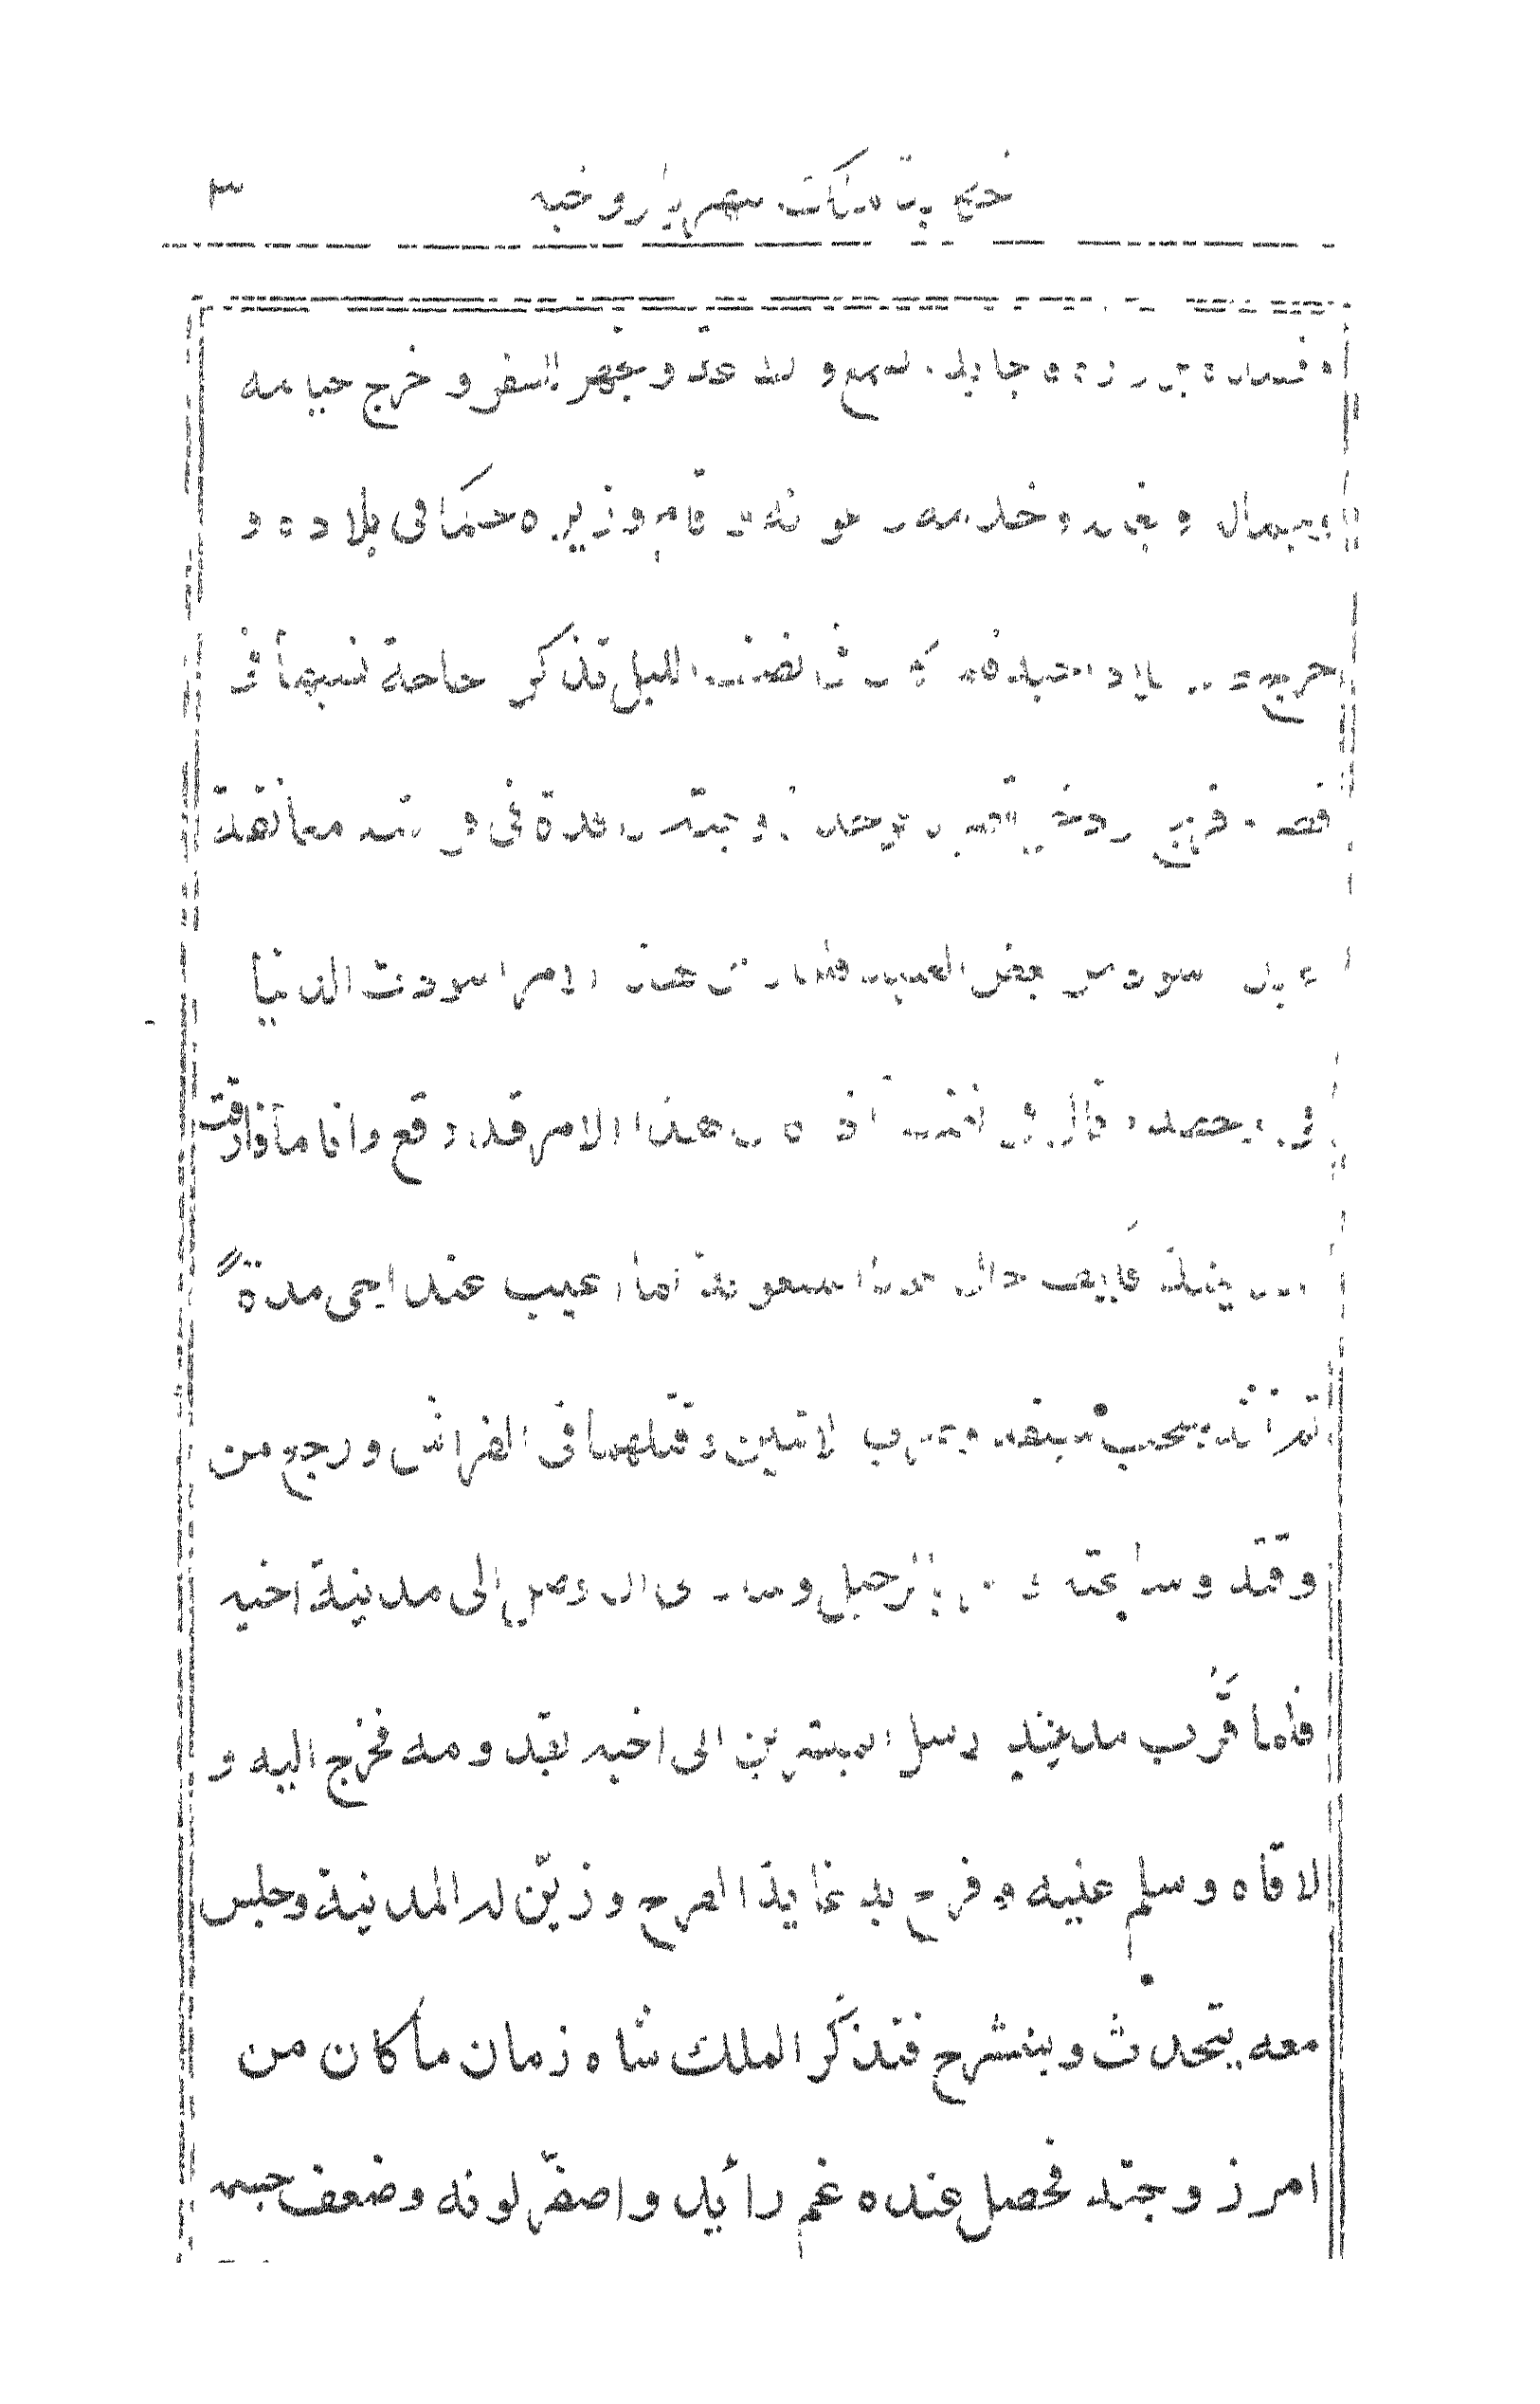 حكاية الملك شهريار و اخيه ٣
فاجابه بالسمع و الطاعة و تجهز للسفر و خرج خيامه
وجماله و بغاله و خدامه و اعوانه و اقام وزيره حاكما فى بلاده و
خرج بلاد اخيه فلما كان نصف الليل تذكر حاجة نسيها فى
قصره فرجع ودخل قصره فوجد زوجته راقدة فى فراشه معانقة
عبد اسود من بعض العبيد فلما راى هذا الامر اسودت الدنيا
فى وجهه و قال فى نفسه اذا كان هذا الامر قد وقع وانا ما فارقت
المدينة فكيف حال هذه الملعونة اذا اغيب عند اخى مدة
ثم انه سحب سيفه و ضرب الاثنين وقتلهما فى الفراش ورجع من
وقته وساعته و بالرحيل وسار الى ان وصل الى مدينة اخيه
فلما قرب مدينته ارسل المبشرين الى اخيه بقدومه فخرج اليه و
لاقاه وسلم عليه و فرح به غاية الفرح وزين له المدينة وجلس
معه يتحدث وينشرح فتذكر الملك شاه زمان ما كان من
امر زوجته فحصل عنده غم زائد واصفر لونه وضعف جسمه